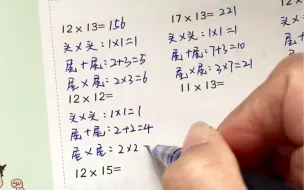 12×13=156
头×头:1×1=1
尾+尾:2+3=5
尾×尾:2×3=6
12×12=
头×头:1×1=1
尾+尾:2+2=4
尾×尾:2×2
12×15=
17×13=221
头×头:1×1=1
尾+尾:7+3=10
尾×尾:3×7=21
11×13=